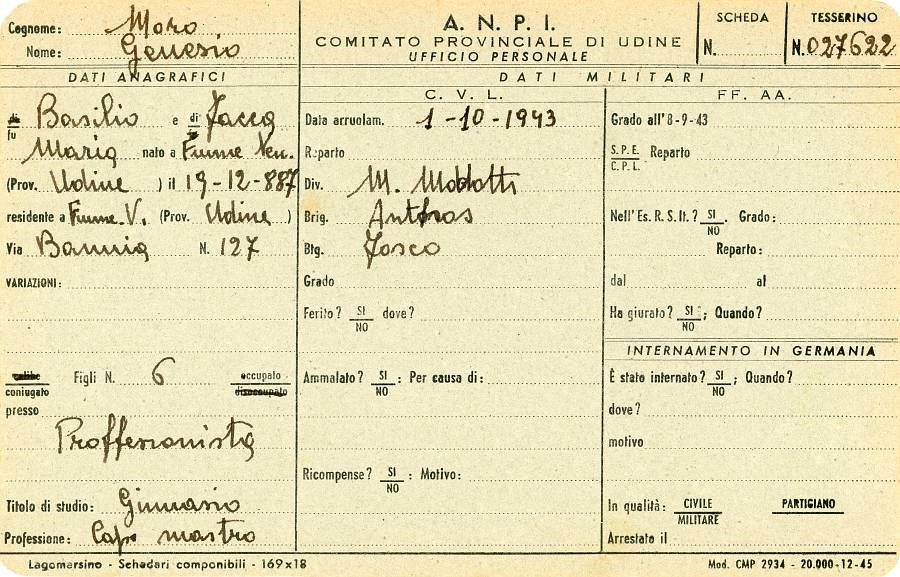 Cognome: Moro
Nome: Genesio
A. N. P. I.
COMITATO PROVINCIALE DI UDINE
UFFICIO PERSONALE
SCHEDA
N.
TESSERINO
N. 027622
DATI ANAGRAFICI
di
fu Basilio e di Zacca
Maria nato a Fiume Ven.
(Prov. Udine ) il 19-12-887
residente a Fiume. V. (Prov. Udine )
Via Bannia N. 127
VARIAZIONI:
celibe
coniugato
Figli N. 6
occupato
disoccupato
presso
Proffessionista
Titolo di studio: Ginnasio
Professione: Capo mastro
DATI MILITARI
C. V. L.
Data arruolam. 1-10-1943
Reparto
Div. M. Modotti
Brig. Anthos
Btg. Tosco
Grado
Ferito? SI
NO dove?
Ammalato? SI
NO : Per causa di:
Ricompense? SI
NO : Motivo:
FF. AA.
Grado all'8-9-43
S.P.E.
C.P.L. Reparto
Nell'Es. R. S. It.? SI
NO . Grado:
Reparto:
dal al
Ha giurato? SI
NO ; Quando?
INTERNAMENTO IN GERMANIA
È stato internato? SI
NO ; Quando?
dove?
motivo
In qualità: CIVILE
MILITARE
PARTIGIANO
Arrestato il
Lagomarsino - Schedari componibili - 169x18
Mod. CMP 2934 - 20.000-12-45